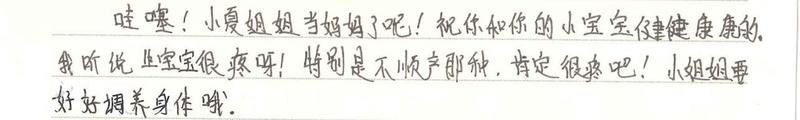 哇噻！小夏姐姐当妈妈了呢！祝你和你的小宝宝健健康康的.
我听说生宝宝很疼呀！特别是不顺产那种.肯定很疼吧！小姐姐要
好好调养身体哦.